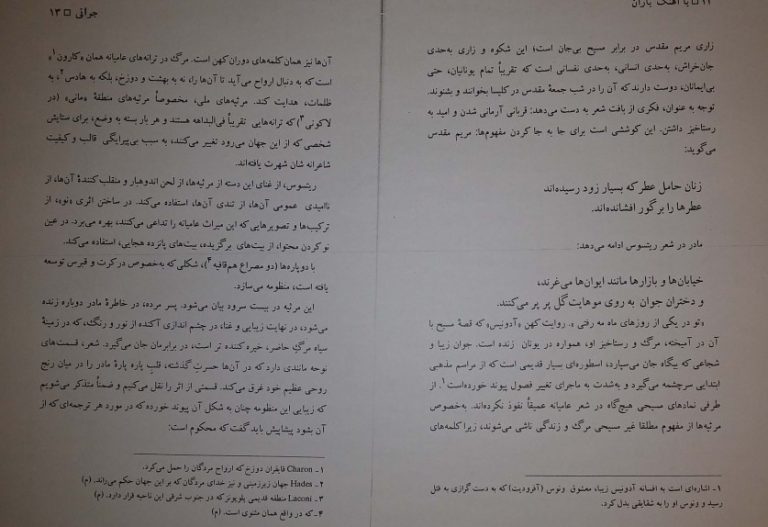 ۱۲ □ با آهنگ باران
زاری مریم مقدس در برابر مسیح بی‌جان است؛ این شکوه و زاری به‌حدی
جان‌خراش، به‌حدی انسانی، به‌حدی نفسانی است که تقریباً تمام یونانیان، حتی
بی‌ایمانان، دوست دارند که آن را در شب جمعهٔ مقدس در کلیسا بخوانند و بشنوند.
توجه به عنوان، فکری از بافت شعر به دست می‌دهد: قربانی آرمانی شدن و امید به
رستاخیز داشتن. این کوششی است برای جا به جا کردن مفهوم‌ها: مریم مقدس
می‌گوید:
زنان حامل عطر که بسیار زود رسیده‌اند
عطرها را برگور افشانده‌اند.
مادر در شعر ریتسوس ادامه می‌دهد:
خیابان‌ها و بازارها مانند ایوان‌ها می‌غرند،
و دختران جوان به روی موهایت گل پر پر می‌کنند.
«تو در یکی از روزهای ماه مه رفتی». روایت کهن «آدونیس» که قصهٔ مسیح با
آن در آمیخته، مرگ و رستاخیز او، همواره در یونان زنده است. جوان زیبا و
شجاعی که بیگاه جان می‌سپارد، اسطوره‌ای بسیار قدیمی است که از مراسم مذهبی
ابتدایی سرچشمه می‌گیرد و به‌شدت به ماجرای تغییر فصول پیوند خورده‌است۱. از
طرفی نمادهای مسیحی هیچ‌گاه در شعر عامیانه عمیقاً نفوذ نکرده‌اند. به‌خصوص
مرثیه‌ها از مفهوم مطلقا غیر مسیحی مرگ و زندگی ناشی می‌شوند، زیرا کلمه‌های
۱ـ اشاره‌ای است به افسانه آدونیس زیبا، معشوق ونوس (آفرودیت) که به دست گرازی به قتل
رسید و ونوس او را به شقایقی بدل کرد.
جوانی □ ۱۳
آن‌ها نیز همان کلمه‌های دوران کهن است. مرگ در ترانه‌های عامیانه همان «کارون۱»
است که به دنبال ارواح می‌آید تا آن‌ها را، نه به بهشت و دوزخ، بلکه به هادس۲، به
ظلمات، هدایت کند. مرثیه‌های ملی، مخصوصاً مرثیه‌های منطقهٔ «مانی» (در
لاکونی۳) که ترانه‌هایی تقریباً فی‌البداهه هستند و هر بار بسته به وضع، برای ستایش
شخصی که از این جهان می‌رود تغییر می‌کنند، به سبب بی‌پیرایگی قالب و کیفیت
شاعرانه شان شهرت یافته‌اند.
ریتسوس، از غنای این دسته از مرثیه‌ها، از لحن اندوهبار و منقلب‌کنندهٔ آن‌ها، از
ناامیدی عمومی آن‌ها، از تندی آن‌ها، استفاده می‌کند. در ساختن اثری «نو»، از
ترکیب‌ها و تصویرهایی که این میراث عامیانه را تداعی می‌کنند، بهره می‌برد. در عین
نو کردن محتوا، از بیت‌های برگزیده، بیت‌های پانزده هجایی، استفاده می‌کند.
با دوپاره‌ها (دو مصراع هم‌قافیه۴)، شکلی که به‌خصوص در کرت و قبرس توسعه
یافته است، منظومه می‌سازد.
این مرثیه در بیست سرود بیان می‌شود. پسر مرده، در خاطرهٔ مادر دوباره زنده
می‌شود، در نهایت زیبایی و غنا، در چشم اندازی آکنده از نور و رنگ، که در زمینهٔ
سیاه مرگ حاضر، خیره کننده تر است، در برابرمان جان می‌گیرد. شعر، قسمت‌های
نوحه مانندی دارد که در آن‌ها حسرت گذشته، قلب پاره پارهٔ مادر را در میان رنج
روحی عظیم خود غرق می‌کند. قسمتی از اثر را نقل می‌کنیم و ضمناً متذکر می‌شویم
که زیبایی این منظومه چنان به شکل آن پیوند خورده که در مورد هر ترجمه‌ای که از
آن بشود پیشاپیش باید گفت که محکوم است:
۱ـ Charon قایقران دوزخ که ارواح مردگان را حمل می‌کرد.
۲ـ Hades جهان زیرزمینی و نیز خدای مردگان که بر این جهان حکم می‌راند. (م)
۳ـ Laconi منطقه قدیمی پلوپونز که در جنوب شرقی این ناحیه قرار دارد. (م)
۴ـ که در واقع همان مثنوی است. (م)